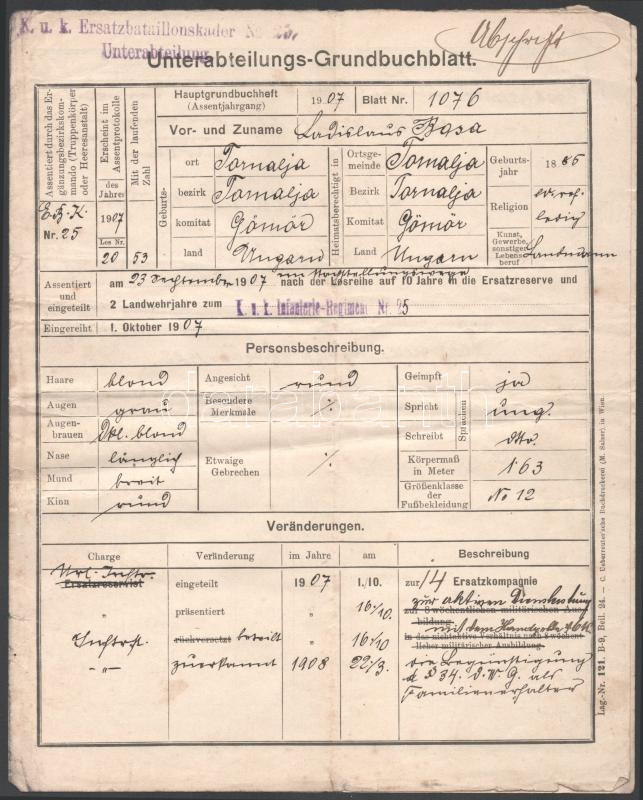 K. u. k. Ersatzbataillonskader No 25,
Unterabteilung
Abschrift
Unterabteilungs-Grundbuchblatt.
Assentiert durch das Ergänzungsbezirkskommando (Truppenkörper oder Heeresanstalt)
E.B.K.
Nr. 25
Erscheint im Assentprotokolle
des Jahres
1907
Los Nr.
20
Mit der laufenden Zahl
53
Hauptgrundbuchheft
(Assentjahrgang)
1907
Blatt Nr. 1076
Vor- und Zuname Ladislaus Basa
Geburts-
ort Tornalja
bezirk Tornalja
komitat Gömör
land Ungarn
Heimatsberechtigt in
Ortsgemeinde Tornalja
Bezirk Tornalja
Komitat Gömör
Land Ungarn
Geburtsjahr 1886
Religion ev. ref.
ledig
Kunst, Gewerbe, sonstiger Lebensberuf Landmann
Assentiert und eingeteilt
am 23 September 1907 im Vorstellungswege nach der Losreihe auf 10 Jahre in die Ersatzreserve und
2 Landwehrjahre zum K. u. k. Infanterie-Regiment Nr. 25
Eingereiht 1. Oktober 1907
Personsbeschreibung.
Haare blond
Augen grau
Augenbrauen Dkl. blond
Nase länglich
Mund breit
Kinn rund
Angesicht rund
Besondere Merkmale ./.
Etwaige Gebrechen ./.
Geimpft ja
Sprachen
Spricht ung.
Schreibt dtto.
Körpermaß in Meter 1·63
Größenklasse der Fußbekleidung No 12
Veränderungen.
Charge Veränderung im Jahre am Beschreibung
Ersatzreservist eingeteilt 1907 1./10. zur 14 Ersatzkompagnie
" präsentiert " 16/10. zur aktiven Dienstleistung
zur 8 wöchentlichen militärischen Ausbildung
Inftrst. rückversetzt beteilt 16/10 mit dem Handgelde
in das nichtaktive Verhältnis nach 8 wöchentlicher militärischer Ausbildung.
-"- zuerkannt 1908 22/3. die Begünstigung
d. § 34. d. W. G. als
Familienerhalter
Lag.-Nr. 121. B-9, Beil. 24. — C. Ueberreuter'sche Buchdruckerei (M. Salzer), in Wien.
darabanth